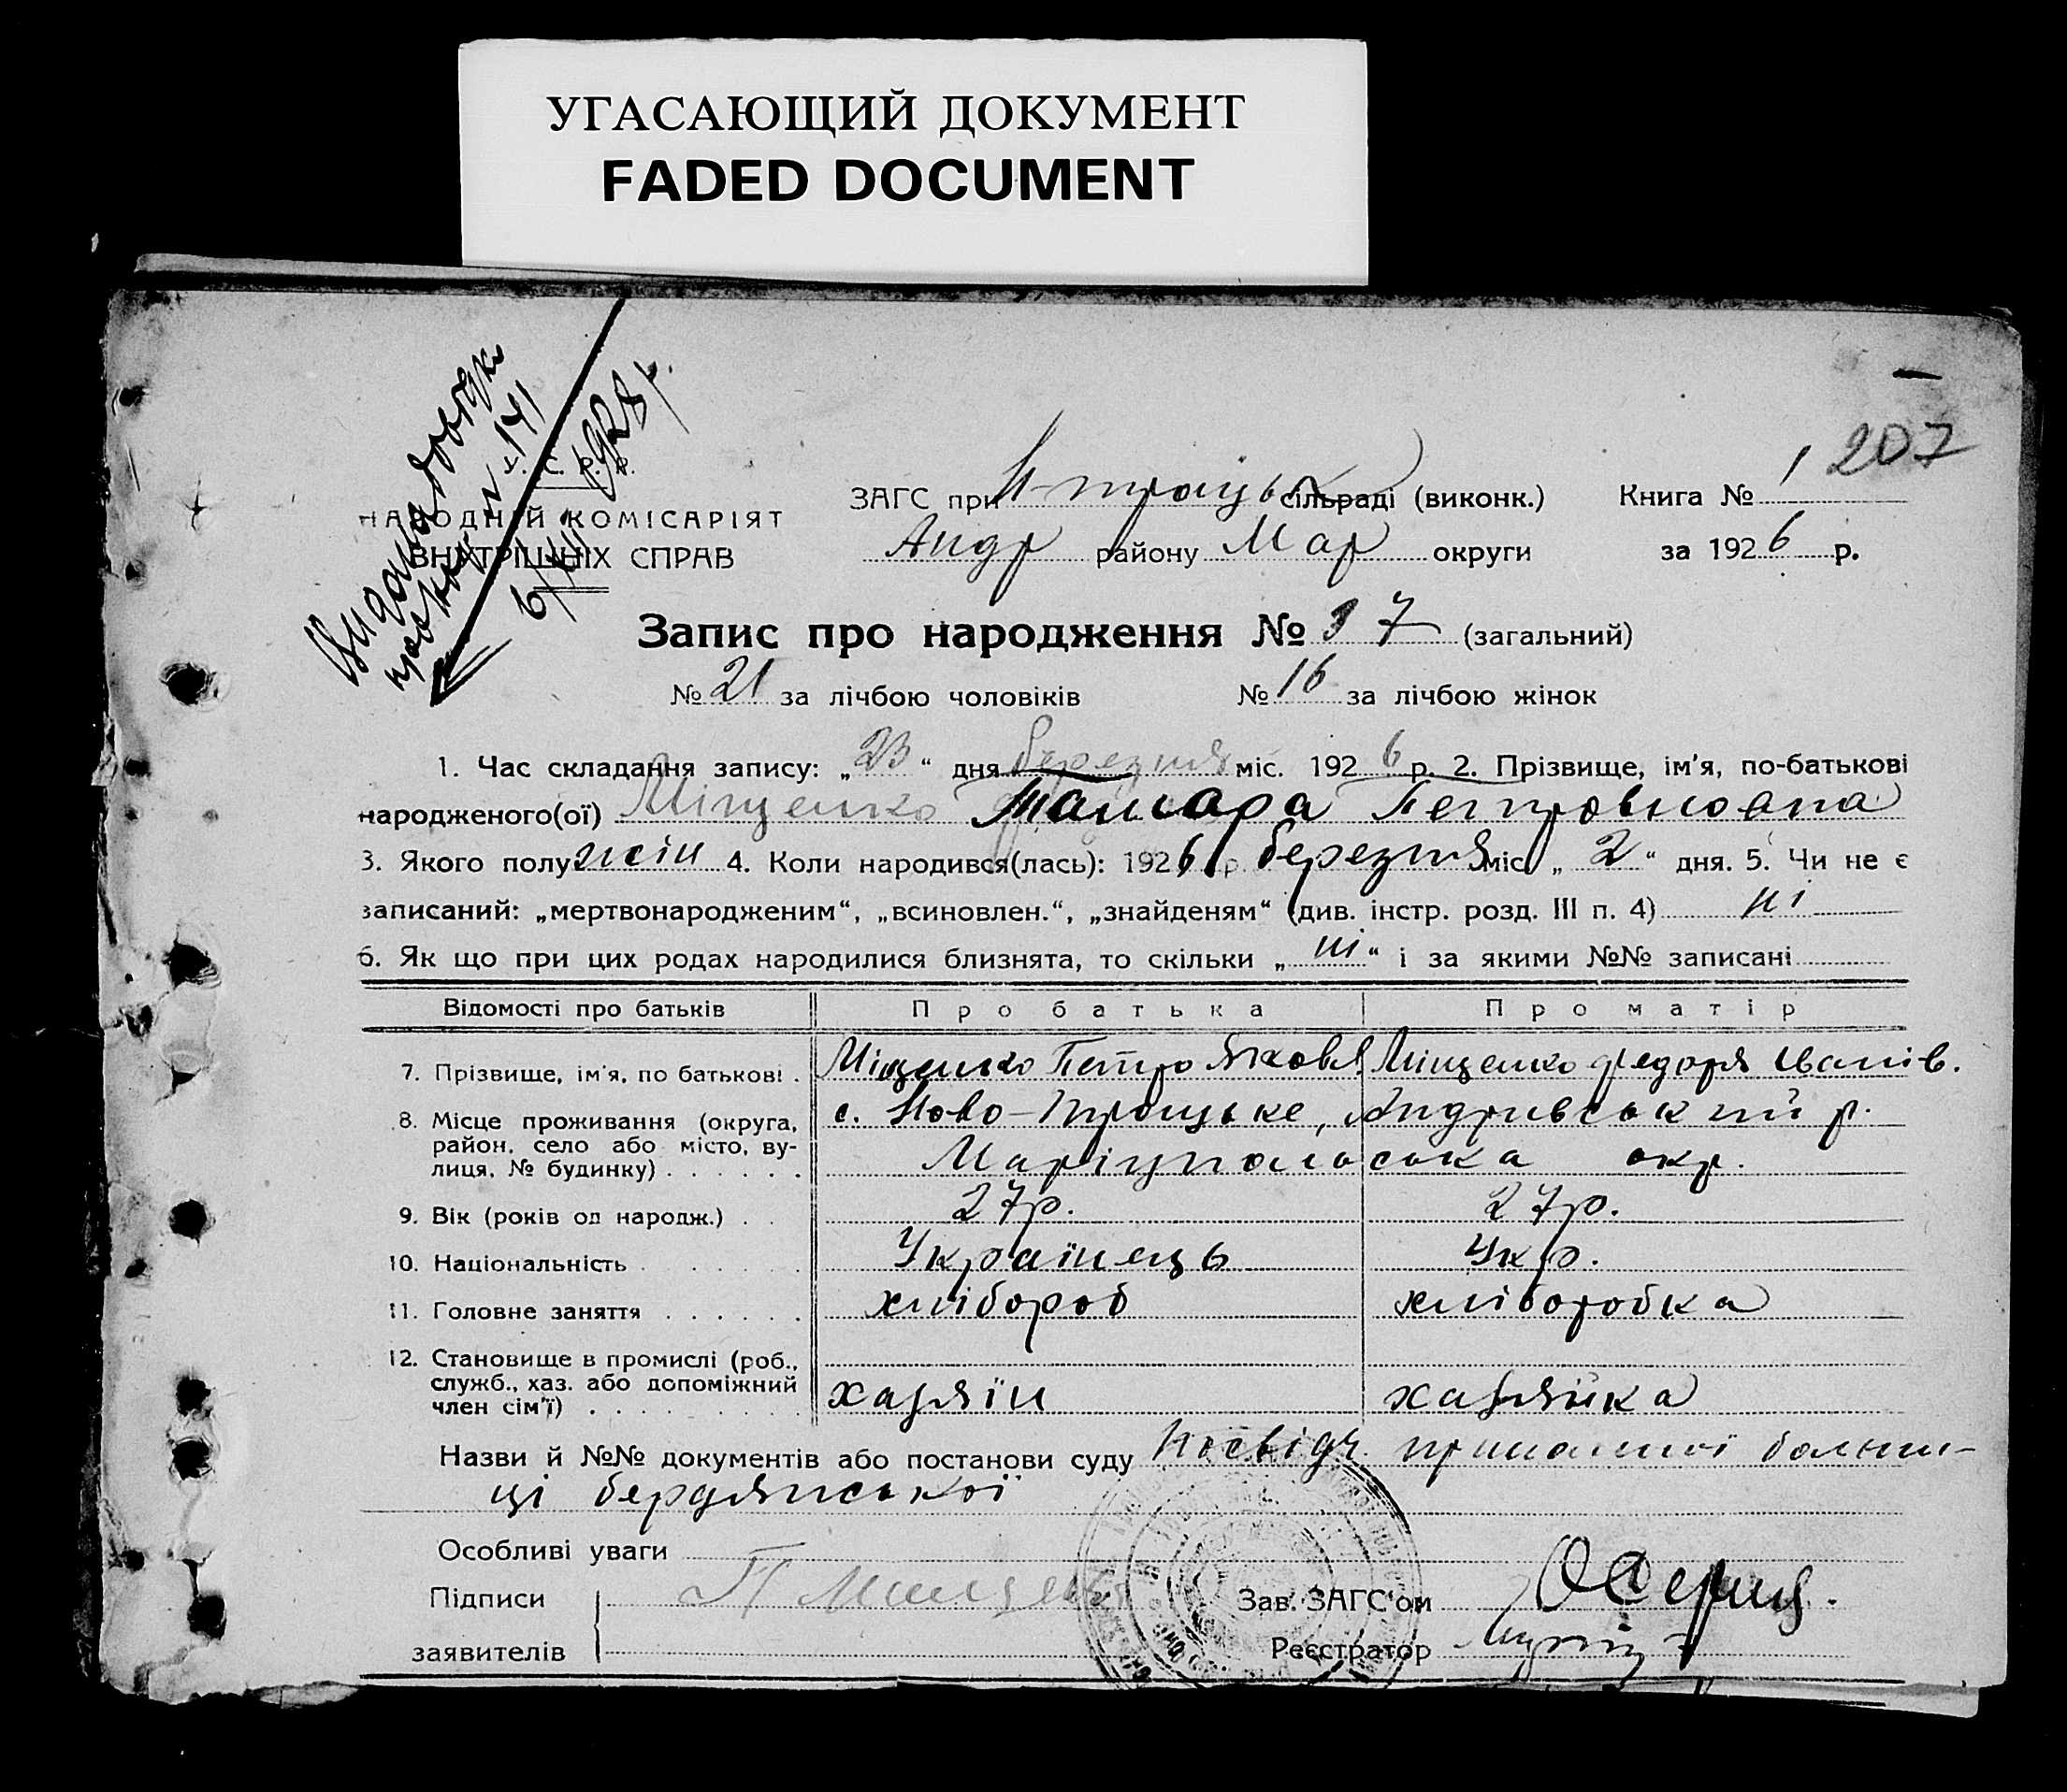 УГАСАЮЩИЙ ДОКУМЕНТ
FADED DOCUMENT
Видана довідка
№ 141
1928 р.
207
У. С. Р. Р.
НАРОДНІЙ КОМІСАРІЯТ
ВНУТРІШНІХ СПРАВ
ЗАГС при Н-Троіцьк сільраді (виконк.) Книга № 1
Андр району Мар округи за 1926 р.
Запис про народження № 37 (загальний)
№ 21 за лічбою чоловіків № 16 за лічбою жінок
1. Час складання запису: „23“ дня березня міс. 1926 р. 2. Прізвище, ім'я, по-батькові
народженого(ої) Міщенко Тамара Петровновна
3. Якого полу жін 4. Коли народився(лась): 1926 р. березня міс. „2“ дня. 5. Чи не є
записаний: „мертвонародженим“, „всиновлен.“, „знайденям“ (див. інстр. розд. III п. 4) ні
6. Як що при цих родах народилися близнята, то скільки „ні“ і за якими №№ записані
Відомості про батьків Про батька Про матір
7. Прізвище, ім'я, по батькові . Міщенко Петро Яковл Міщенко Федоря Іванів.
8. Місце проживання (округа, с. Ново-Троіцьке, Андрівський р.
район, село або місто, ву-
лиця, № будинку) . . . . . . Маріупольська окр.
9. Вік (років од народж.) . . 27р. 27р.
10. Національність . . . . Українець Укр.
11. Головне заняття . . . . . . хлібороб хліборобка
12. Становище в промислі (роб.,
служб., хаз. або допоміжний
член сім'ї) . . . . . . . . хазяїн хазяйка
Назви й №№ документів або постанови суду Посвідч. больни-
ці бердянської
Особливі уваги
Підписи П Мищенко Зав. ЗАГС'ом
заявителів Реєстратор